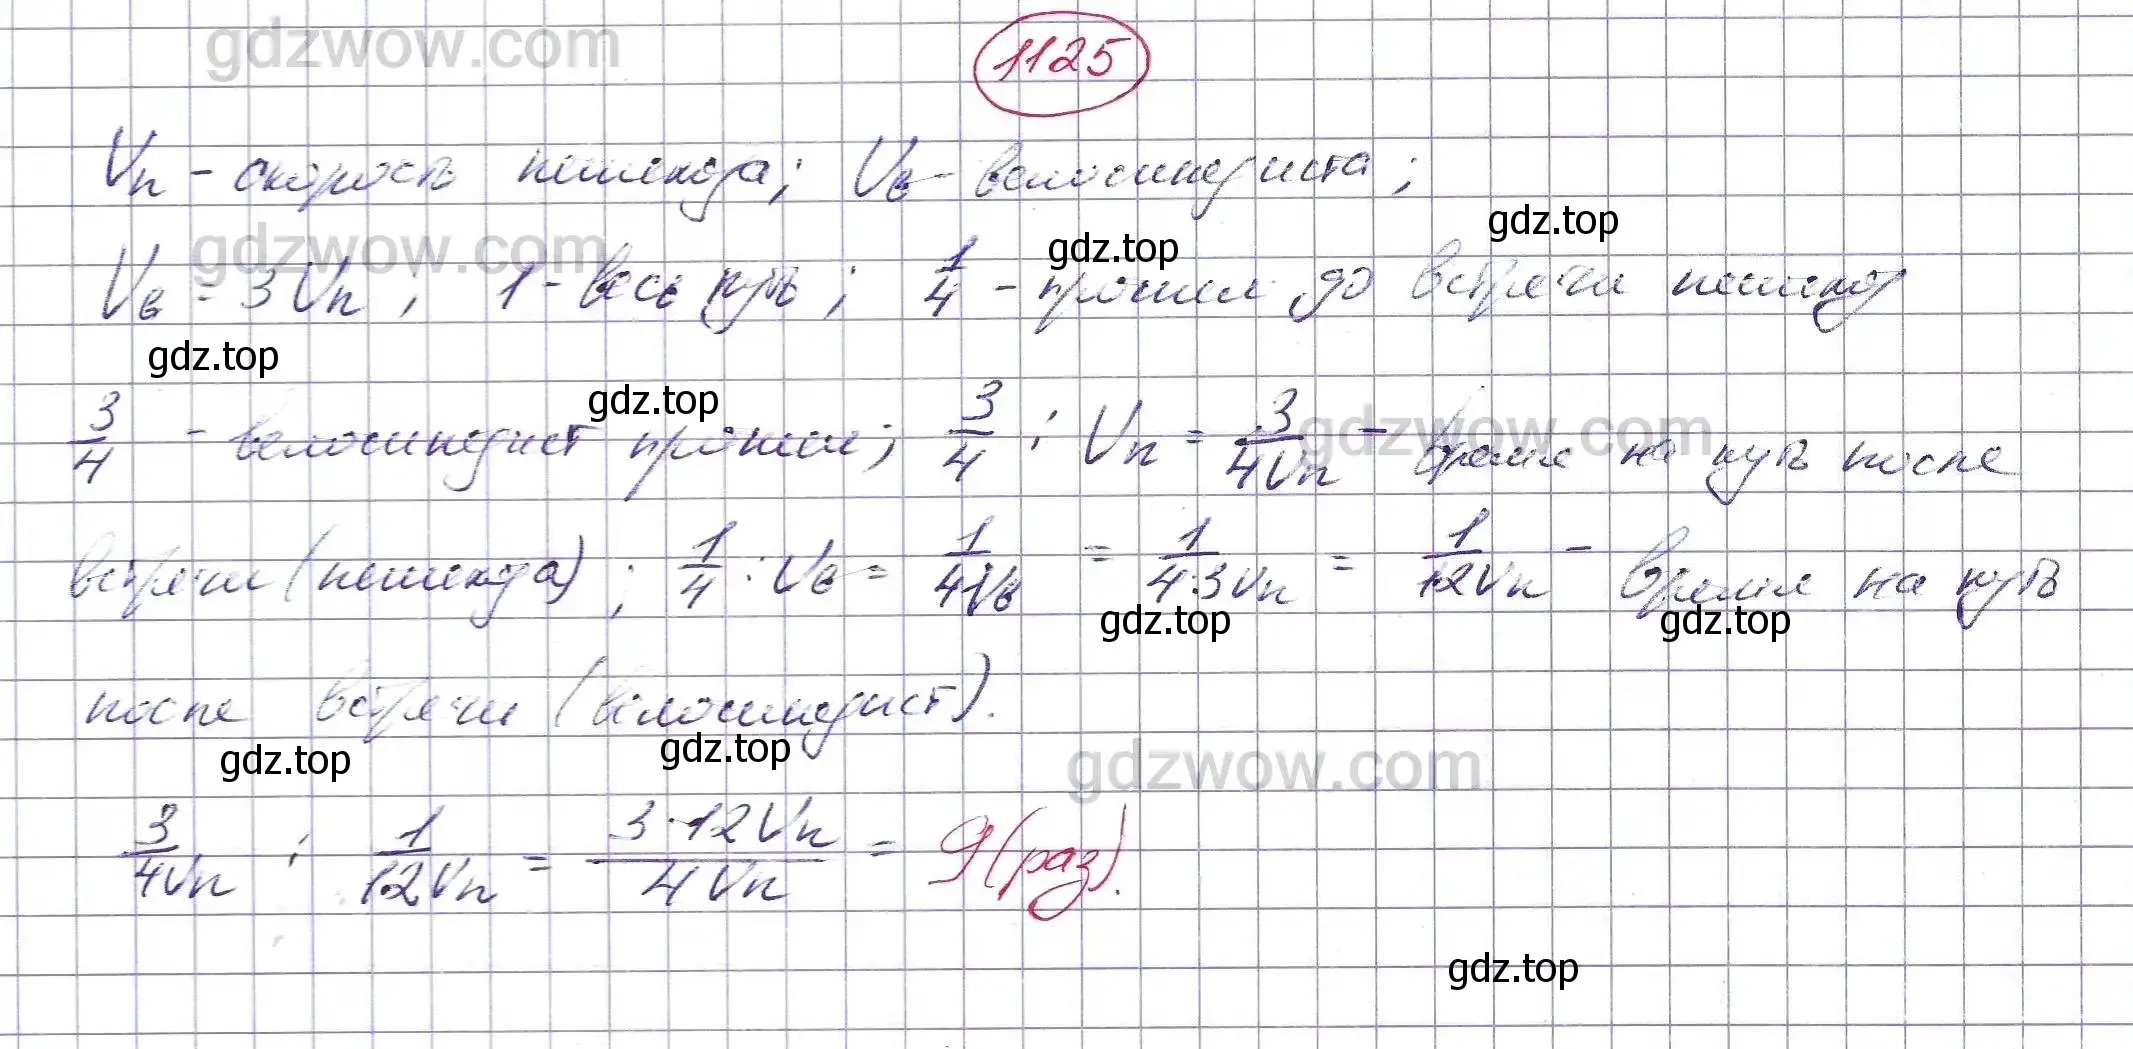 gdzwow.com
1125
Vп - скорость пешехода; Vв - велосипедиста;
gdzwow.com gdz.top gdz.top
Vв = 3Vп; 1 - весь путь; 1/4 - прошел до встречи пешеход
gdz.top gdz.top
3/4 - велосипедист прошел; 3/4 : Vп = 3/4Vп - время на путь после
gdzwow.com
встречи (пешехода); 1/4 : Vв = 1/4Vв = 1/4·3Vп = 1/12Vп - время на путь
gdz.top gdz.top
после встречи (велосипедист).
gdz.top gdz.top gdzwow.com
3/4Vп : 1/12Vп = 3·12Vп/4Vп = 9 (раз).
gdz.top